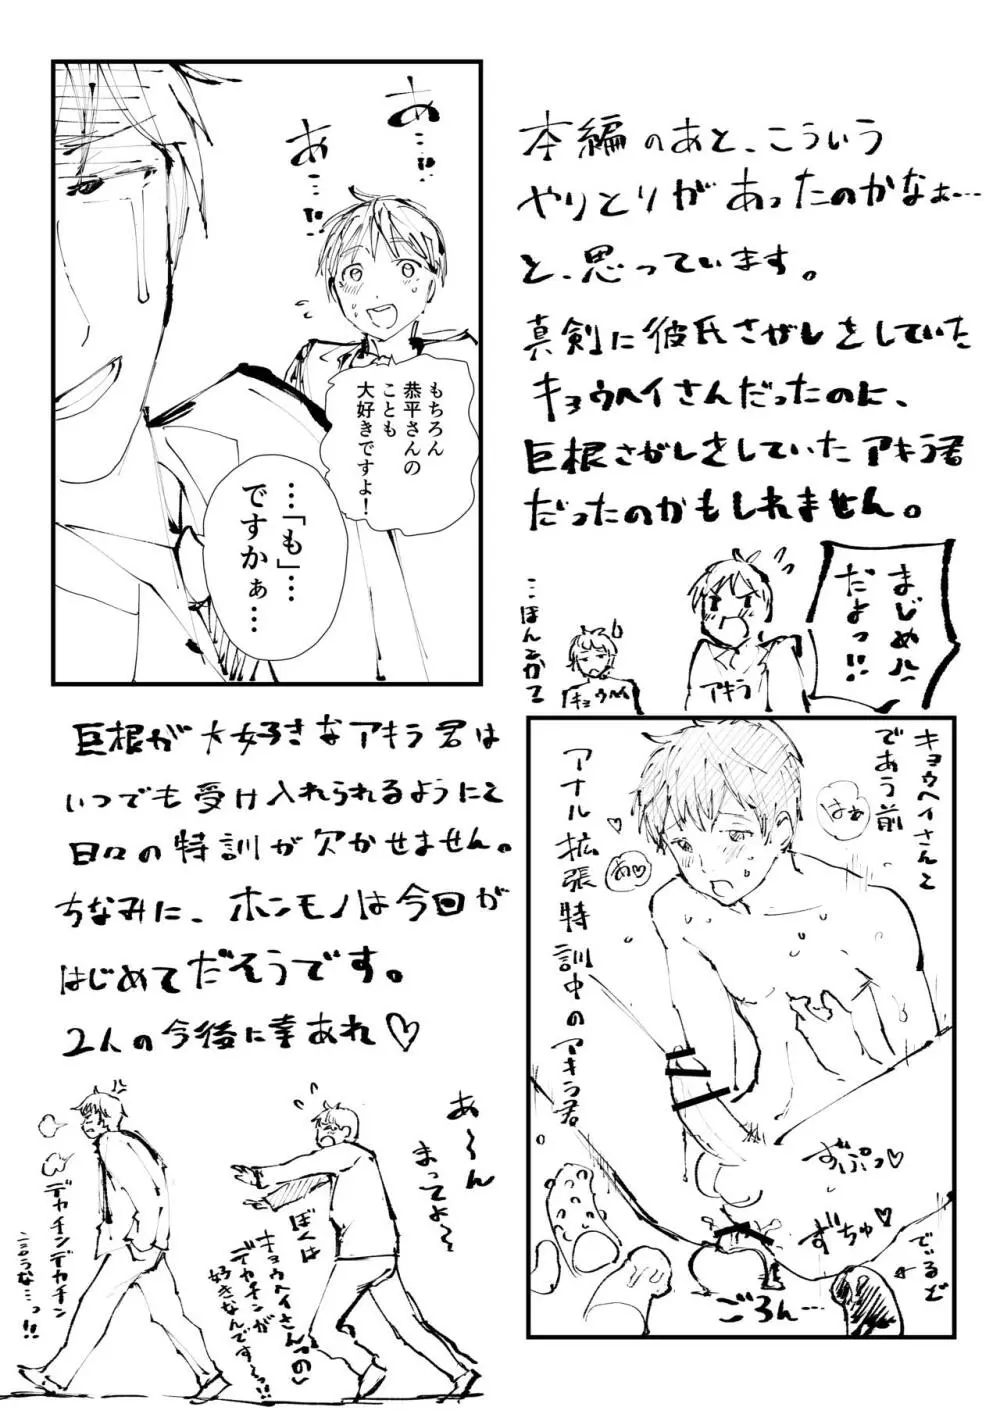 本編のあと、こういう
やりとりがあったのかなぁ…
と、思っています。
真剣に彼氏さがしをしていた
キョウヘイさんだったのに、
巨根さがしをしていたアキラ君
だったのかもしれません。
あ…っ
あ…!!
もちろん
恭平さんの
ことも
大好きですよ！
…「も」…
ですかぁ…
まじめ
だよっ!!
アキラ
キョウヘイ
…ほんとかて
巨根が大好きなアキラ君は
いつでも受け入れられるようにと
日々の特訓が欠かせません。
ちなみに、ホンモノは今回が
はじめてだそうです。
2人の今後に幸あれ♡
キョウヘイさんと
であう前
アナル拡張特訓中のアキラ君
はぁ
あ♡
ずぷっ♡
ずちゅ♡
ごろん…
あ〜ん
まってよ〜
ぼくは
キョウヘイさんの
デカチンが
好きなんです〜っ!!
デカチンデカチン
言うな…っ!!